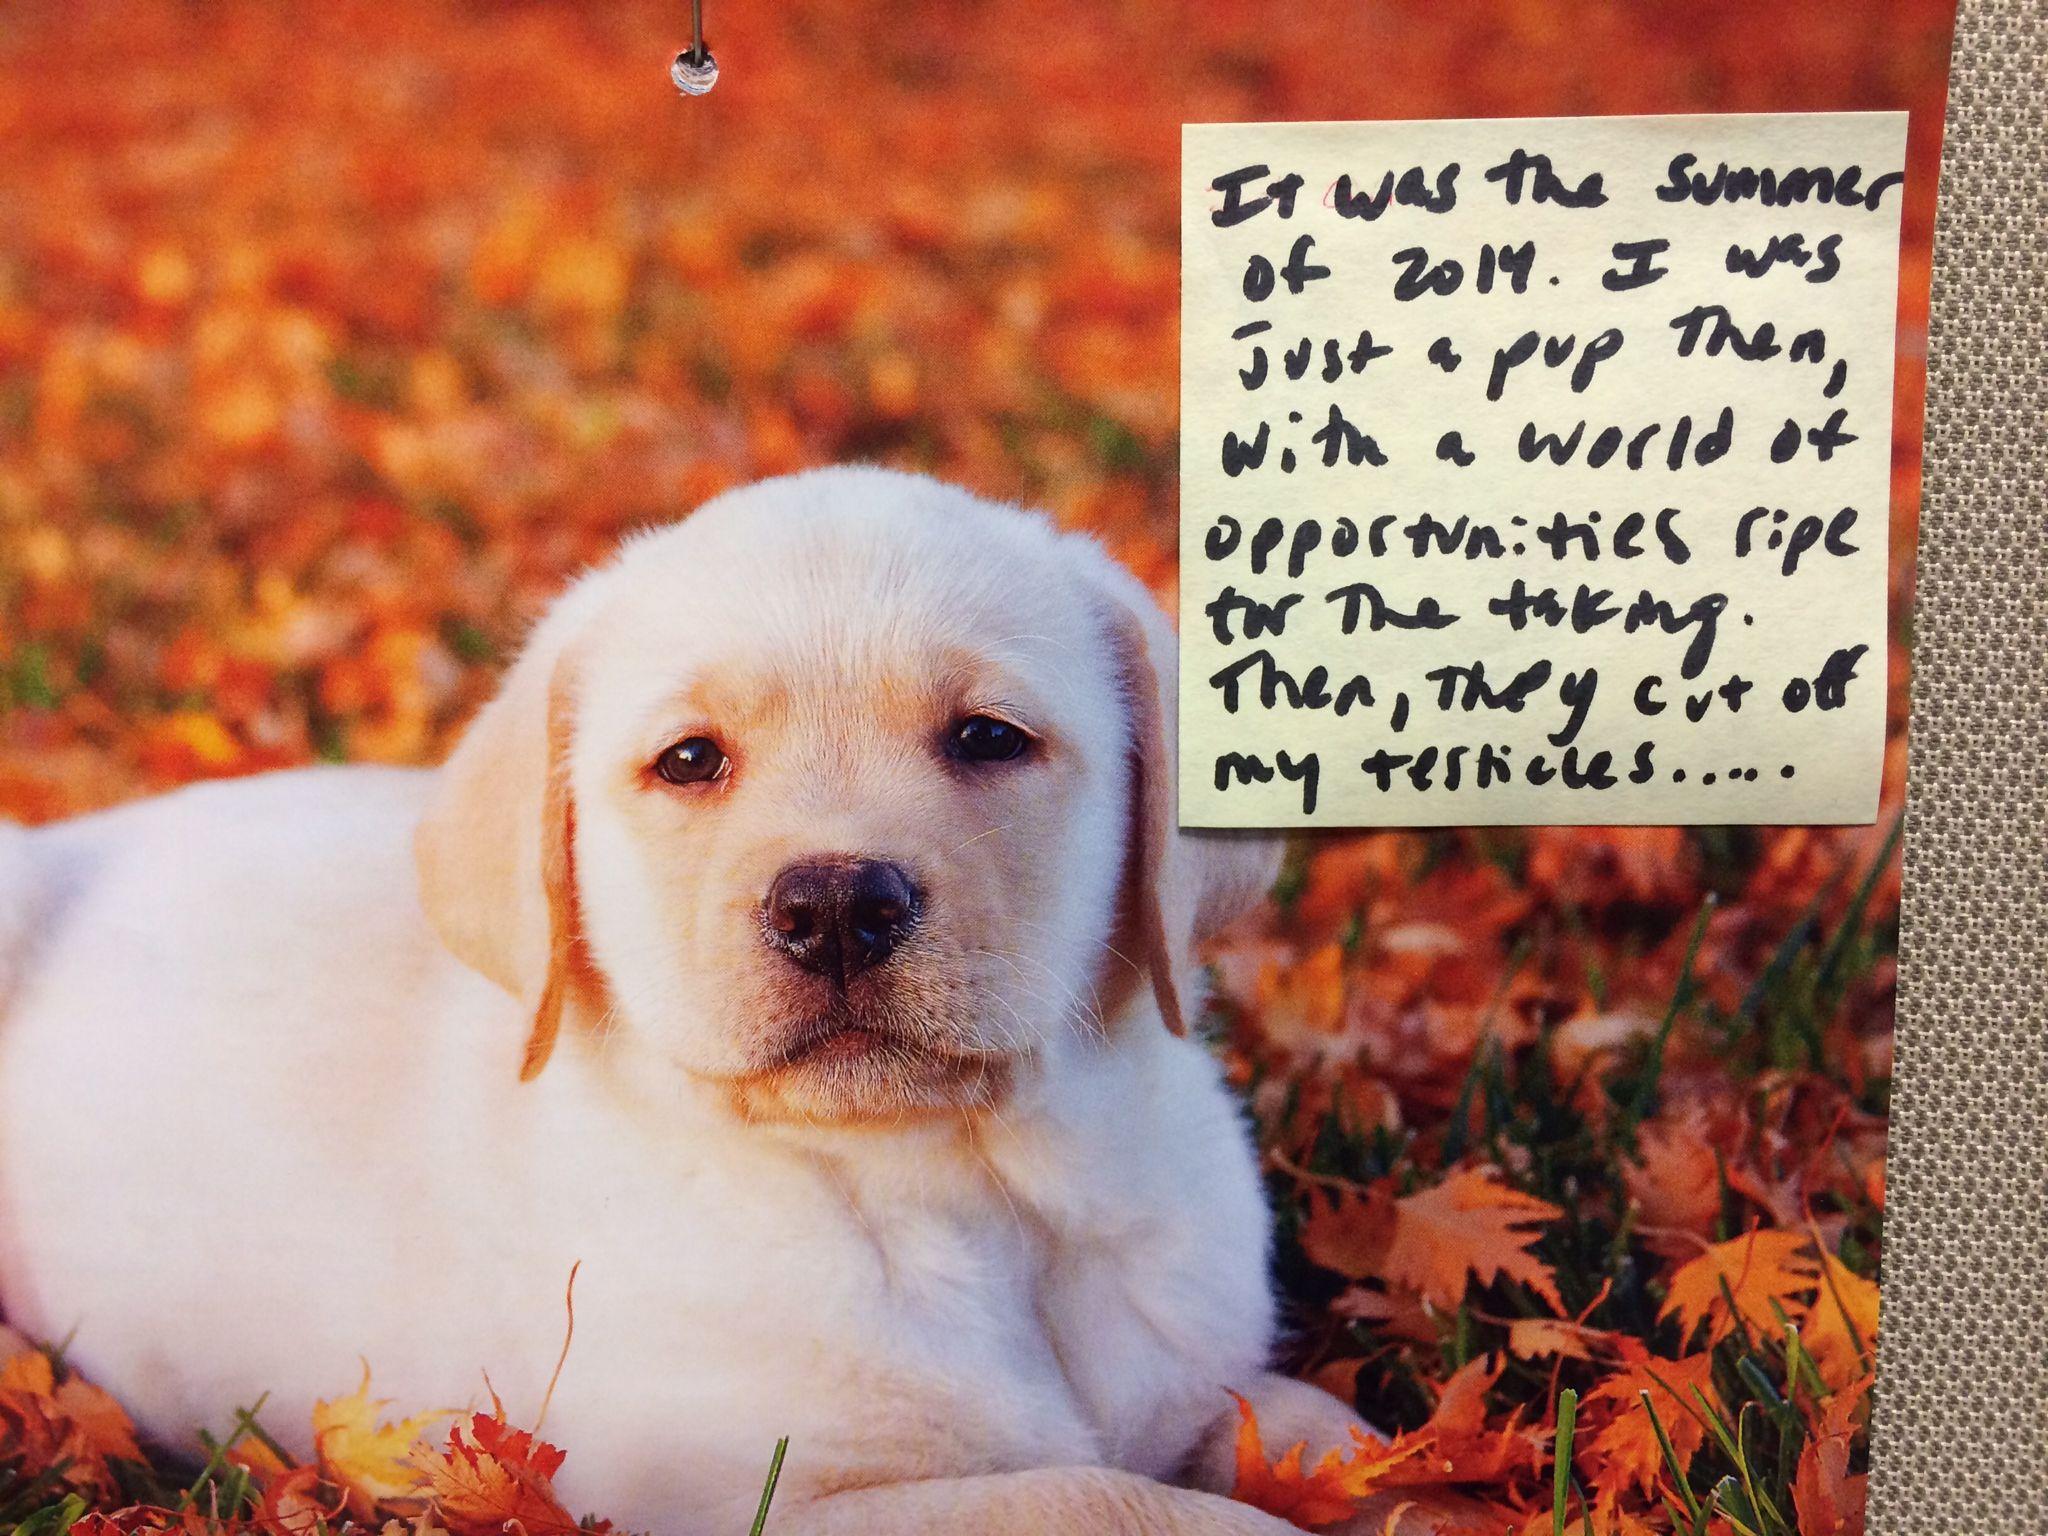 It was the summer
of 2014. I was
Just a pup Then,
with a world of
opportunities ripe
for The taking.
Then, They cut off
my testicles.....